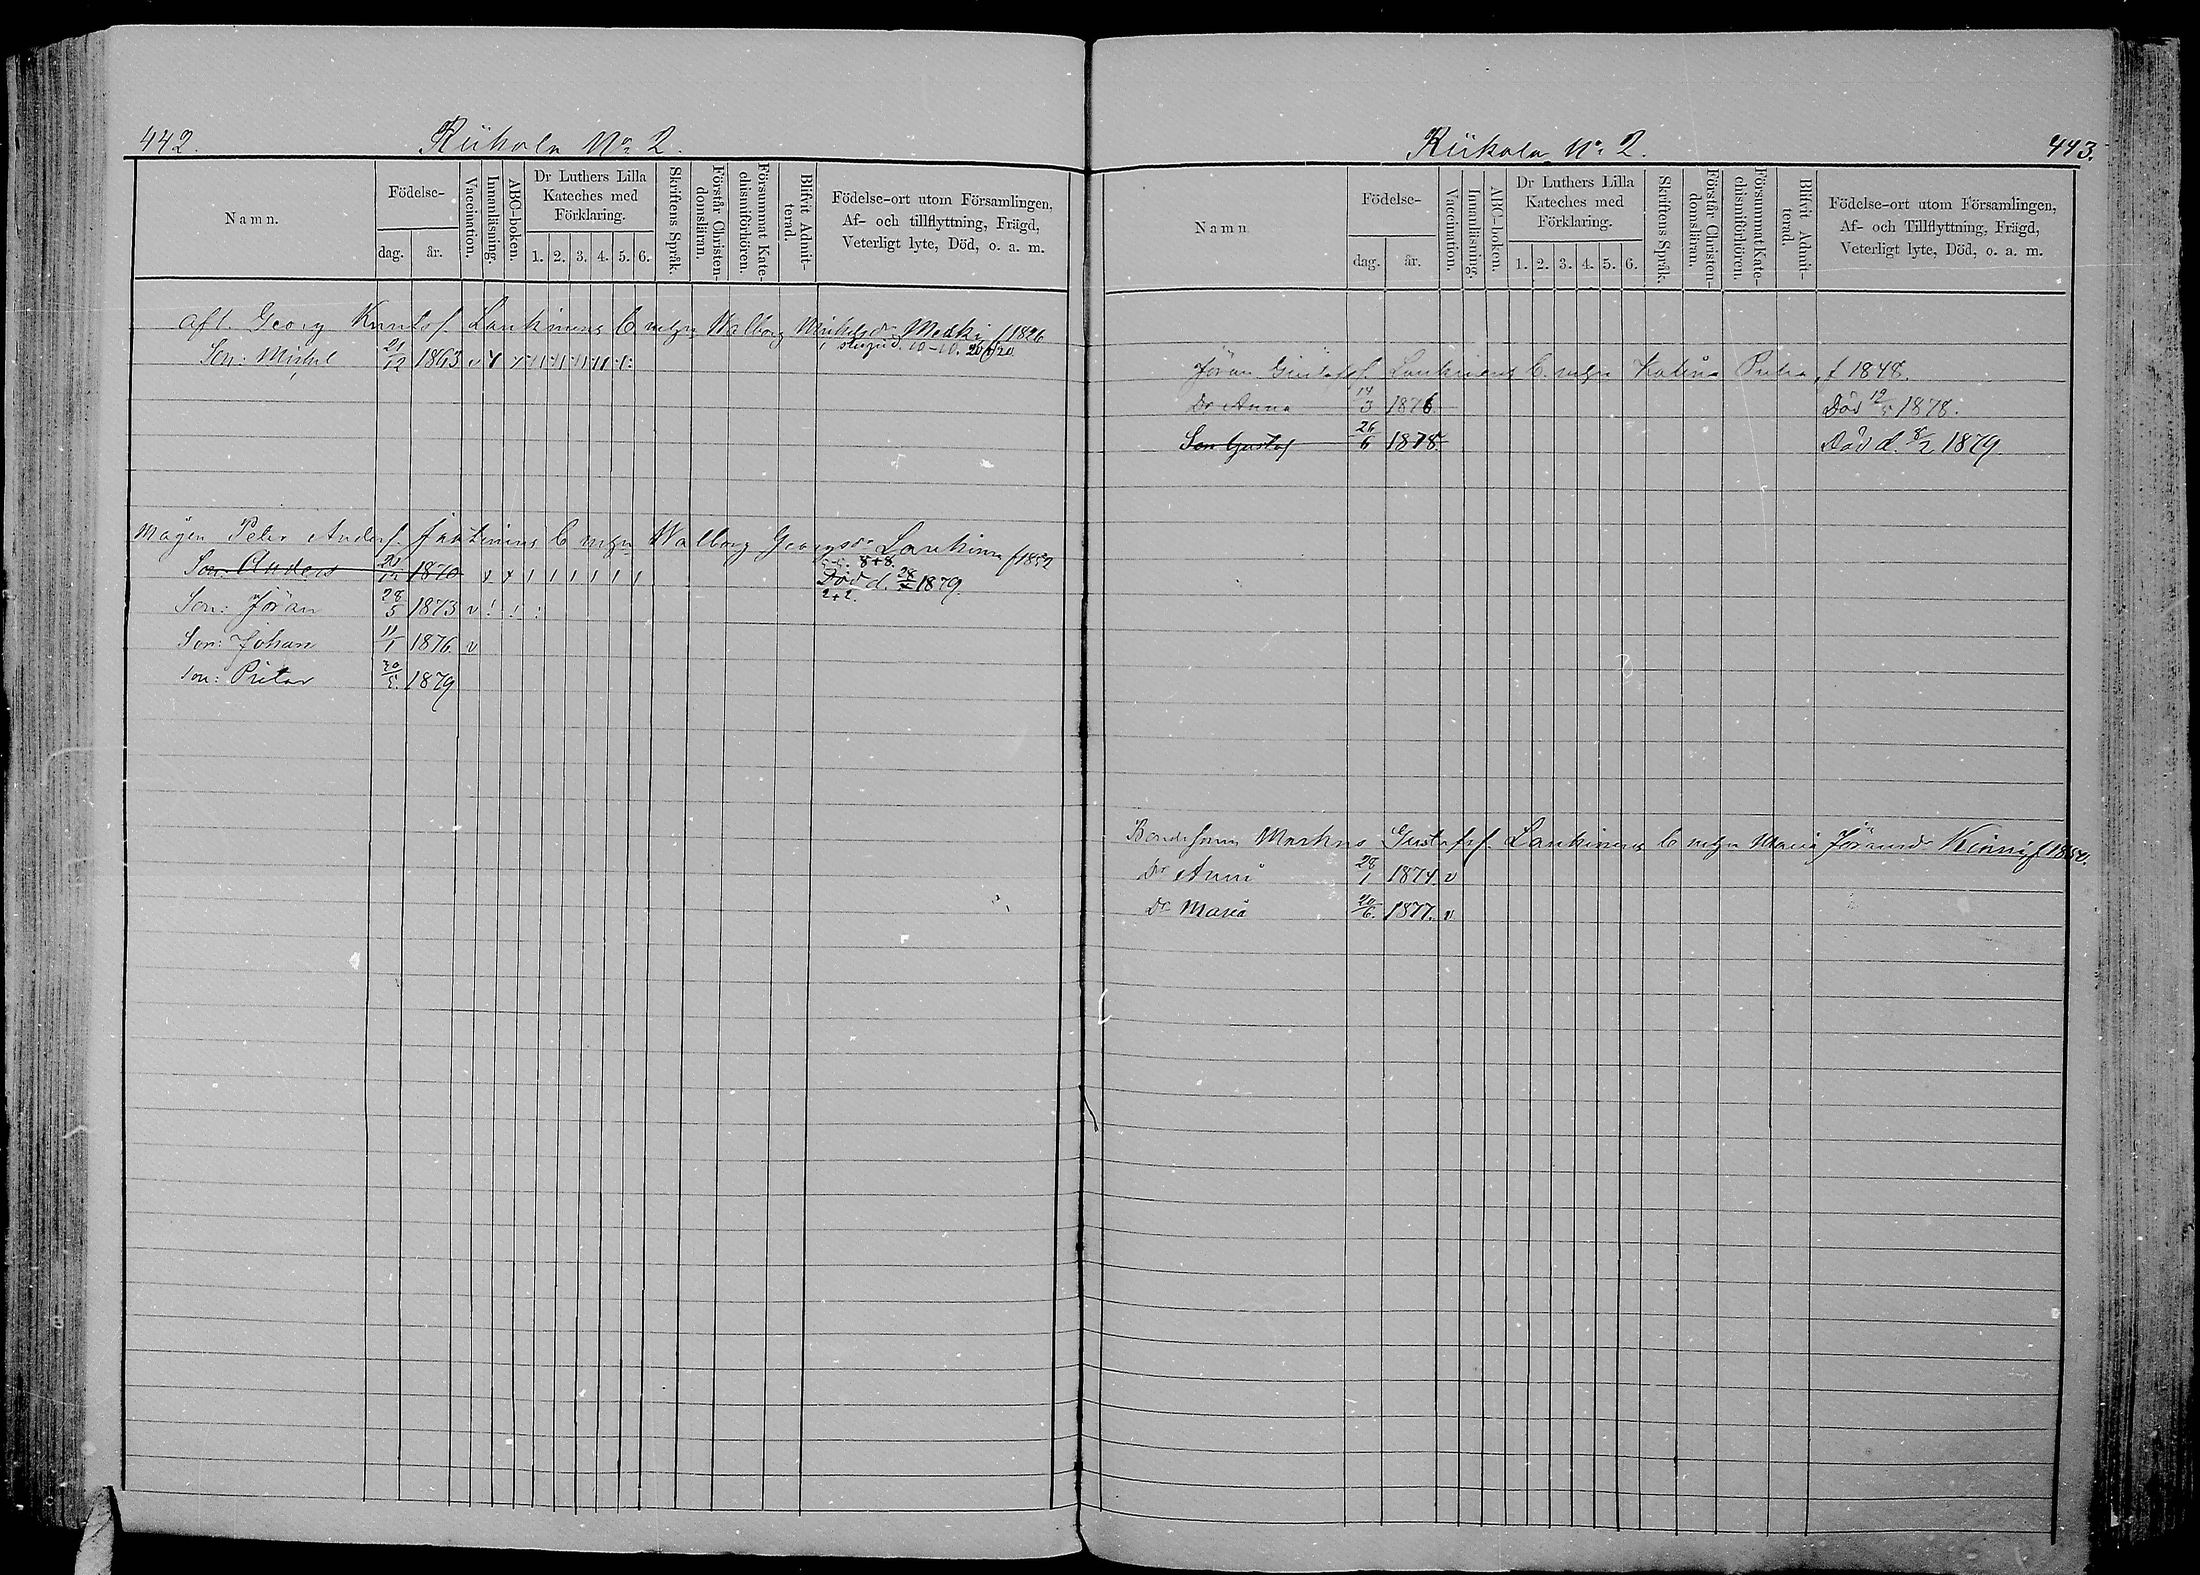 442.
Riikola No 2.
Namn.
Födelse-
dag.
år.
Vaccination.
Innanläsning.
ABC-boken.
Dr Luthers Lilla
Kateches med
Förklaring.
1. 2. 3. 4. 5. 6.
Skriftens Språk.
Förstår Christen-
domsläran.
Försummat Kate-
chismiförhören.
Blifvit Admit-
terad.
Födelse-ort utom Församlingen,
Af- och tillflyttning, Frägd,
Veterligt lyte, Död, o. a. m.
Afl. Georg Knutsf. Lankinens C. mlgn Walborg f 1826
Son: Michel 21/12 1863 v
Mågen Peter Andersf. C mlgn Walborg Georgsdr Lankinen f 1852
5-5. 8+8.
Son: Anders 20/12 1870 Död d. 1879.
2+2.
Son: Jöran 28/5 1873 v
Son: Johan 11/1 1876 v
Son: Pietar 30/5. 1879
Riikola No 2.
443.
Namn
Födelse-
dag.
år.
Vaccination.
Innanläsning.
ABC-boken.
Dr Luthers Lilla
Kateches med
Förklaring.
1. 2. 3. 4. 5. 6.
Skriftens Språk.
Förstår Christen-
domsläran.
Försummat Kate-
chismiförhören.
Blifvit Admit-
terad.
Födelse-ort utom Församlingen,
Af- och Tillflyttning, Frägd,
Veterligt lyte, Död, o. a. m.
Jöran Gustafsf. Lankinens C. mlgn Katrina f 1848.
Dr Anna 14/3 1876 Död 12/5 1878.
Son Gustaf 26/6 1878 Död d. 8/2 1879.
Bondesonen Markus Gustafsf. Lankinens C mlgn Maria Jöransdr Kinnij f 1850.
Dr Anna 28/1 1874. v
Dr Maria 20/6. 1877. v